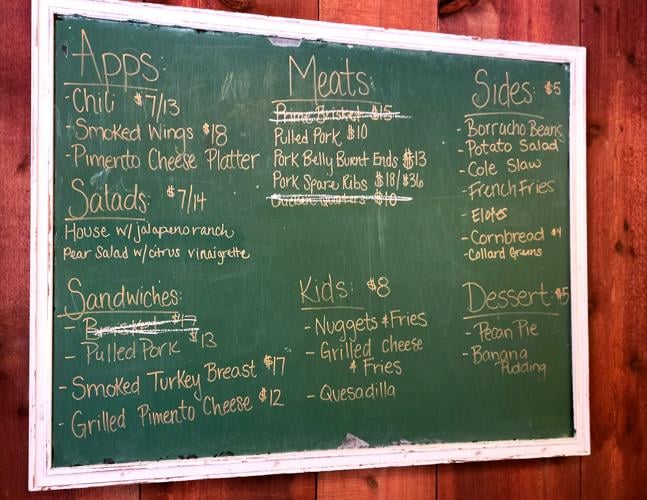 Apps:
- Chili $7/13
- Smoked Wings $18
- Pimento Cheese Platter
Salads: $7/14
House w/jalapeno ranch
Pear Salad w/citrus vinaigrette
Sandwiches:
- Pulled Pork $13
- Smoked Turkey Breast $17
- Grilled Pimento Cheese $12
Meats:
Prime Brisket $15
Pulled Pork $10
Pork Belly Burnt Ends $13
Pork Spare Ribs $18/$36
Chicken Quarters $10
Kids: $8
- Nuggets & Fries
- Grilled Cheese
& Fries
- Quesadilla
Sides: $5
- Borracho Beans
- Potato Salad
- Cole Slaw
- French Fries
- Elotes
- Cornbread $4
- Collard Greens
Dessert: $5
- Pecan Pie
- Banana
Pudding